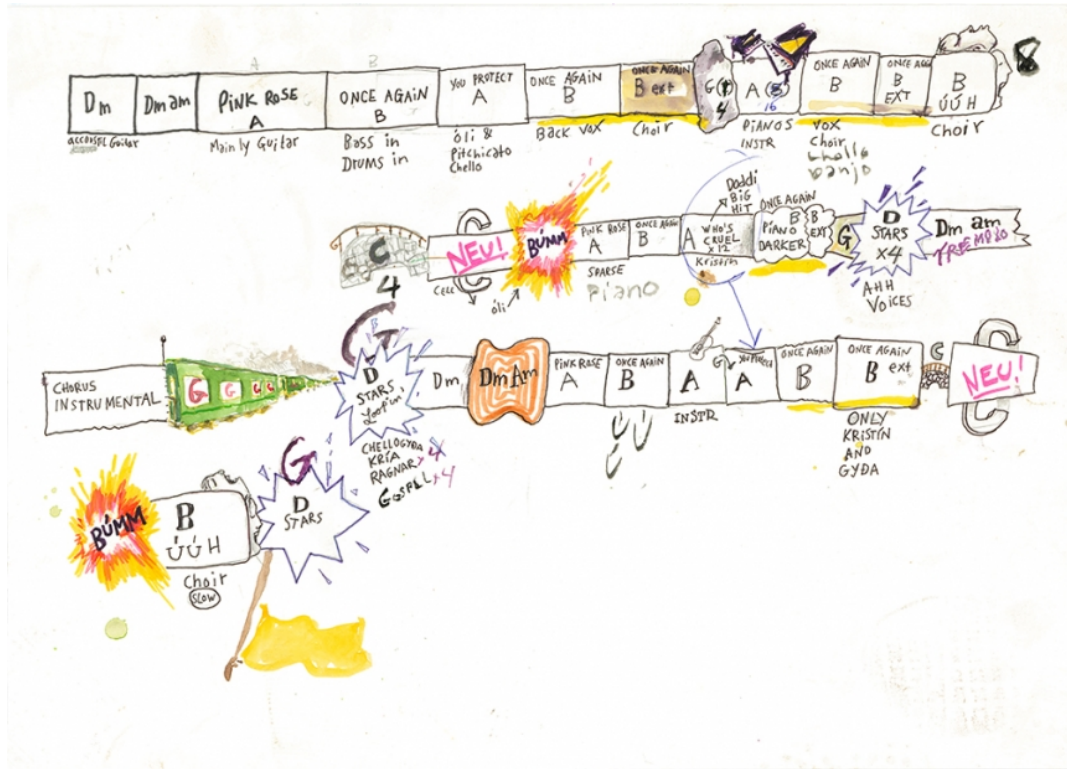 A B
Dm
Dm am
PINK ROSE
A
ONCE AGAIN
B
YOU PROTECT
A
ONCE AGAIN
B
ONCE AGAIN
B ext
4
A
16
ONCE AGAIN
B
B
EXT
B
ÚÚH
B
Guitar
Mainly Guitar
Bass in
DRUMS in
Óli &
Pitchicato
Chello
Back Vox
Choir
PIANOS
INSTR
VOX
Choir
Chello
banjo
Choir
C
4
NEU!
C
BÚMM
PINK ROSE
A
ONCE AGAIN
B
A
WHO'S
CRUEL
x 12
Kristín
Doddi
BIG
HIT
ONCE AGAIN
B
PIANO
DARKER
B
EXT
G
D
STARS
x4
Dm am
TREMOLO
CELL
óli
SPARSE
Piano
AHH
VOICES
CHORUS
INSTRUMENTAL
G G G G
G
D
STARS
Loopin'
Dm
Dm Am
PINK ROSE
A
ONCE AGAIN
B
A
G
A
ONCE AGAIN
B
ONCE AGAIN
B ext
C
NEU!
C
CHELLOGYÐA
KRÍA
RAGNAR
GOSPELL x4
ÚÚ
INSTR
ONLY
KRISTÍN
AND
GYÐA
BÚMM
B
ÚÚH
G
D
STARS
Choir
SLOW